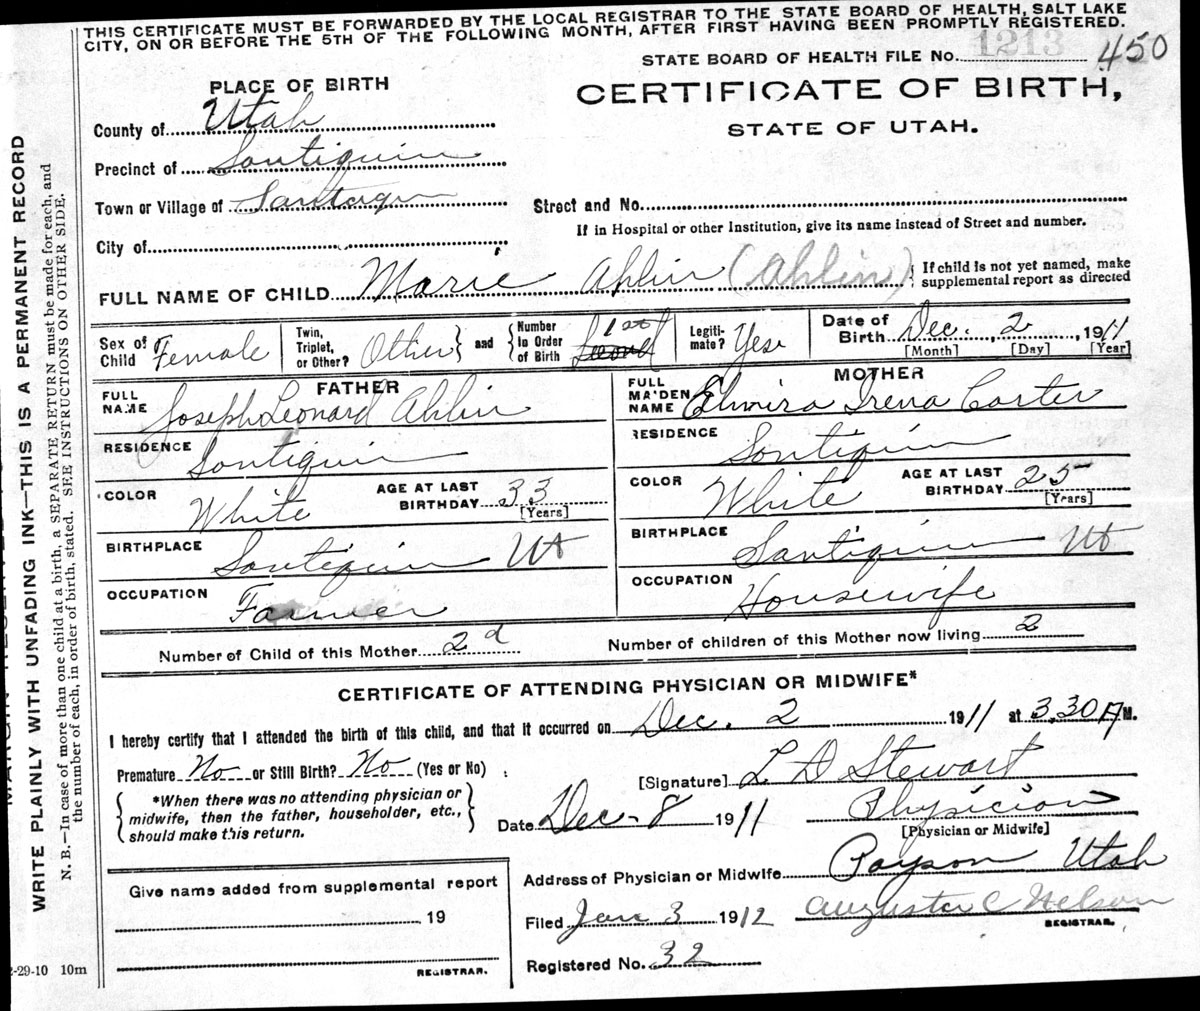 THIS CERTIFICATE MUST BE FORWARDED BY THE LOCAL REGISTRAR TO THE STATE BOARD OF HEALTH, SALT LAKE
CITY, ON OR BEFORE THE 5TH OF THE FOLLOWING MONTH, AFTER FIRST HAVING BEEN PROMPTLY REGISTERED.
STATE BOARD OF HEALTH FILE No. 1213 450
PLACE OF BIRTH
CERTIFICATE OF BIRTH,
STATE OF UTAH.
County of Utah
Precinct of Santiquin
Town or Village of Santaqu
Street and No.
If in Hospital or other Institution, give its name instead of Street and number.
City of
FULL NAME OF CHILD Marie Ahlin (Ahlin) If child is not yet named, make
supplemental report as directed
Sex of Child Female
Twin, Triplet, or Other? Other and
Number in Order of Birth 1st Second
Legiti-mate? Yes
Date of Birth Dec. 2, 1911
[Month] [Day] [Year]
FATHER
FULL NAME Joseph Leonard Ahlin
RESIDENCE Santiquin
COLOR White AGE AT LAST BIRTHDAY 33
[Years]
BIRTHPLACE Santiquin Ut
OCCUPATION Farmer
MOTHER
FULL MAIDEN NAME Elmira Irena Carter
RESIDENCE Santiquin
COLOR White AGE AT LAST BIRTHDAY 25
[Years]
BIRTHPLACE Santiquin Ut
OCCUPATION Housewife
Number of Child of this Mother 2d Number of children of this Mother now living 2
CERTIFICATE OF ATTENDING PHYSICIAN OR MIDWIFE*
I hereby certify that I attended the birth of this child, and that it occurred on Dec. 2 1911 at 3.30 A M.
Premature No or Still Birth? No (Yes or No)
[Signature] L D Stewart
*When there was no attending physician or
midwife, then the father, householder, etc.,
should make this return.
Date Dec-8 1911 Physician
[Physician or Midwife]
Address of Physician or Midwife Payson Utah
Give name added from supplemental report
19
REGISTRAR.
Filed Jan 3 1912 Augusta C Nelson
REGISTRAR.
Registered No. 32
-29-10 10m
WRITE PLAINLY WITH UNFADING INK—THIS IS A PERMANENT RECORD
N. B.—In case of more than one child at a birth, a SEPARATE RETURN must be made for each, and
the number of each, in order of birth, stated. SEE INSTRUCTIONS ON OTHER SIDE.